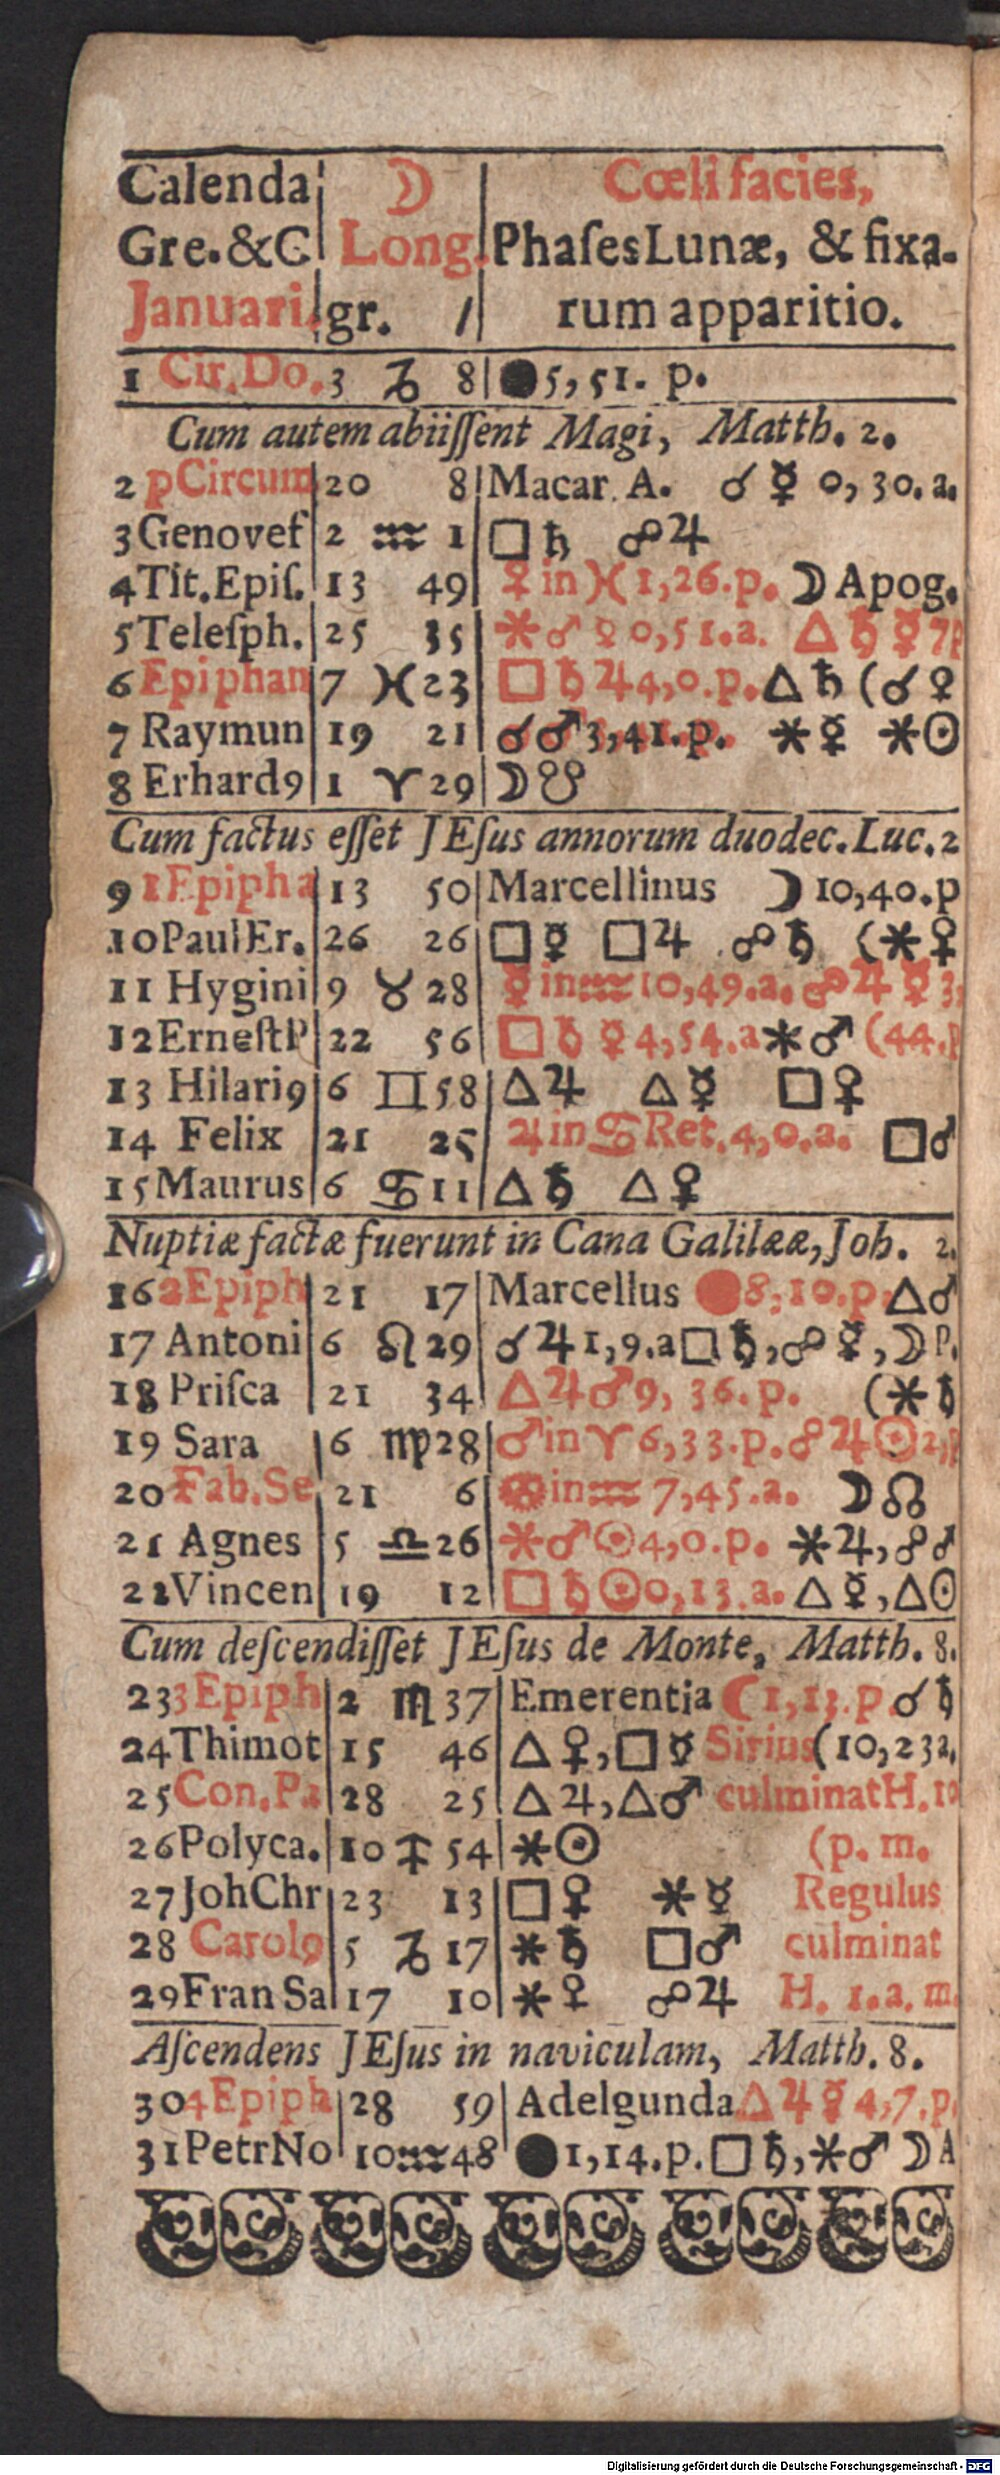 Calenda ☽ Cœli facies,
Gre. & C Long. Phaſes Lunæ, & fixa-
Januari. gr. / rum apparitio.
1 Cir. Do. 3 ♑ 8 ● 5, 51. p.
Cum autem abiiſſent Magi, Matth. 2.
2 p Circum 20 8 Macar. A. ☌ ☿ 0, 30. a.
3 Genovef 2 ♒ 1 □ ♄ ☍ ♃
4 Tit. Epiſ. 13 49 ♀ in ♓ 1, 26. p. ☽ Apog.
5 Teleſph. 25 35 ⚹ ♂ ♀ 0, 51. a. △ ♄ ☿ 7 p
6 Epiphan 7 ♓ 23 □ ♄ ♃ 4, 0. p. △ ♄ (☌ ♀
7 Raymun 19 21 ☌ ♂ 3, 41. p. ⚹ ☿ ⚹ ☉
8 Erhard9 1 ♈ 29 ☽ ☋
Cum factus eſſet JEſus annorum duodec. Luc. 2
9 1 Epipha 13 50 Marcellinus ☽ 10, 40. p
10 Paul Er. 26 26 □ ☿ □ ♃ ☍ ♄ (⚹ ♀
11 Hygini 9 ♉ 28 ☿ in ♒ 10, 49. a. ☍ ♃ ☿ 3,
12 Erneſt P 22 56 □ ♄ ♀ 4, 54. a ⚹ ♂ (44. p
13 Hilari9 6 ♊ 58 △ ♃ △ ☿ □ ♀
14 Felix 21 25 ♃ in ♋ Ret. 4, 0. a. □ ♂
15 Maurus 6 ♋ 11 △ ♄ △ ♀
Nuptiæ factæ fuerunt in Cana Galilææ, Joh. 2.
16 2 Epiph 21 17 Marcellus ● 8, 10. p. △ ♂
17 Antoni 6 ♌ 29 ☌ ♃ 1, 9. a □ ♄, ☍ ☿, ☽ P.
18 Priſca 21 34 △ ♃ ♂ 9, 36. p. (⚹ ♄
19 Sara 6 ♍ 28 ♂ in ♈ 6, 33. p. ☍ ♃ ☉ 2, p
20 Fab. Se 21 6 ☉ in ♒ 7, 45. a. ☽ ☊
21 Agnes 5 ♎ 26 ⚹ ♂ ☉ 4, 0. p. ⚹ ♃, ☍ ♂
22 Vincen 19 12 □ ♄ ☉ 0, 13. a. △ ☿, △ ☉
Cum deſcendiſſet JEſus de Monte, Matth. 8.
23 3 Epiph 2 ♏ 37 Emerentia ☾ 1, 13. p ☌ ♄
24 Thimot 15 46 △ ♀, □ ☿ Sirius (10, 23 a,
25 Con. Pa 28 25 △ ♃, △ ♂ culminat H. 10
26 Polyca. 10 ♐ 54 ⚹ ☉ (p. m.
27 Joh Chr 23 13 □ ♀ ⚹ ☿ Regulus
28 Carol9 5 ♑ 17 ⚹ ♄ □ ♂ culminat
29 Fran Sa 17 10 ⚹ ♀ ☍ ♃ H. 1. a. m.
Aſcendens JEſus in naviculam, Matth. 8.
30 4 Epiph 28 59 Adelgunda △ ♃ ☿ 4, 7. p.
31 Petr No 10 ♒ 48 ● 1, 14. p. □ ♄, ⚹ ♂ ☽ A
Digitalisierung gefördert durch die Deutsche Forschungsgemeinschaft - DFG